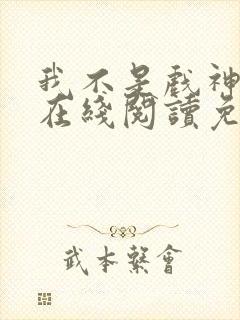 我不是戲神
在綫閱讀免
武本繫會